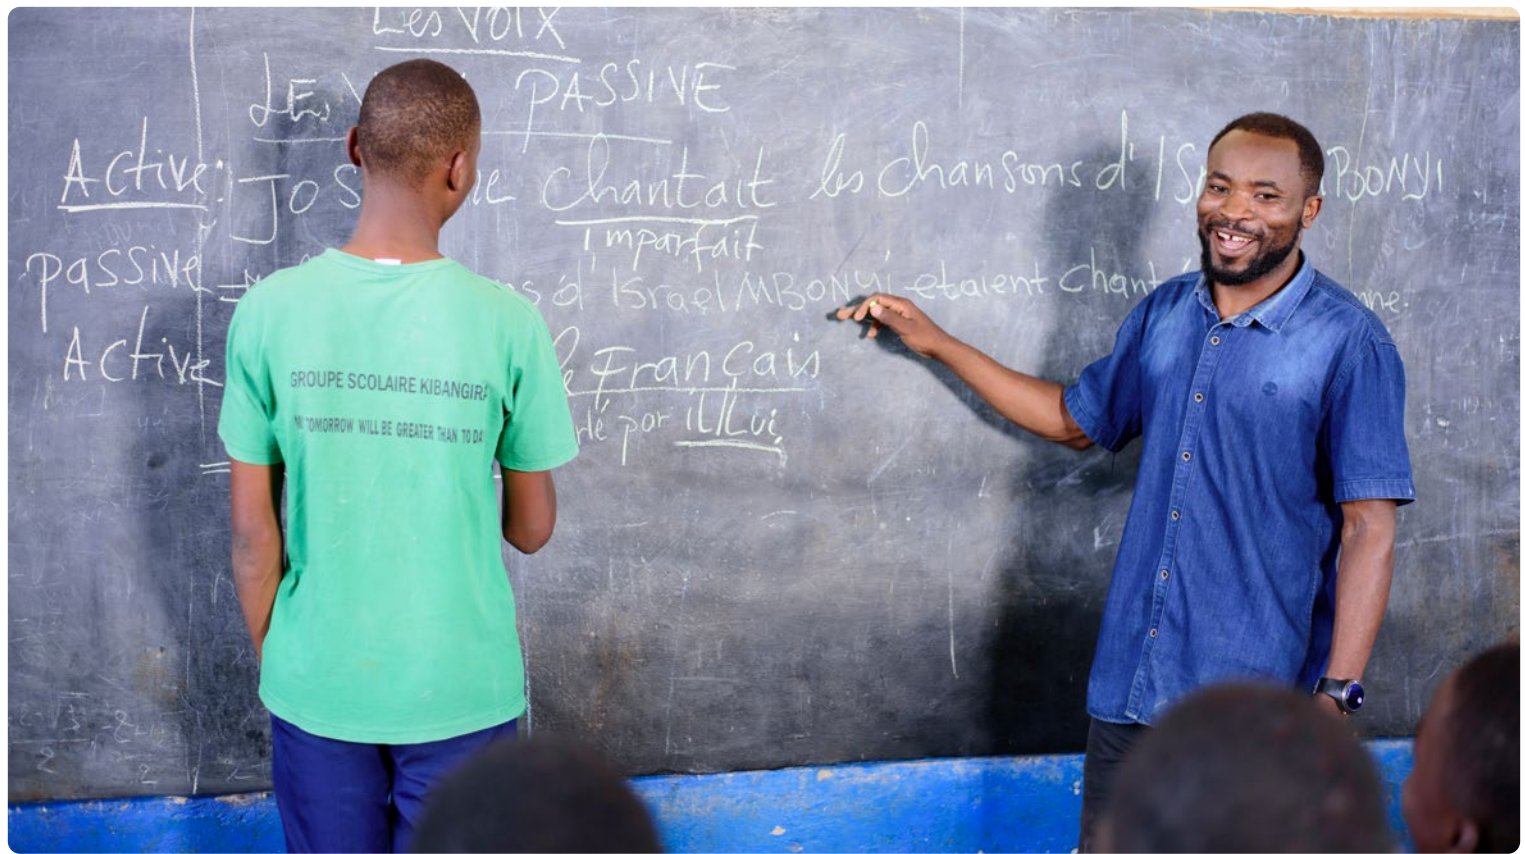 Les VOIX
PASSIVE
Active: chantait les chansons d'
imparfait
passive d'Israel MBONYI etaient
Active Français
par il/Lui
GROUPE SCOLAIRE KIBANGIRA
TOMORROW WILL BE GREATER THAN TO DAY